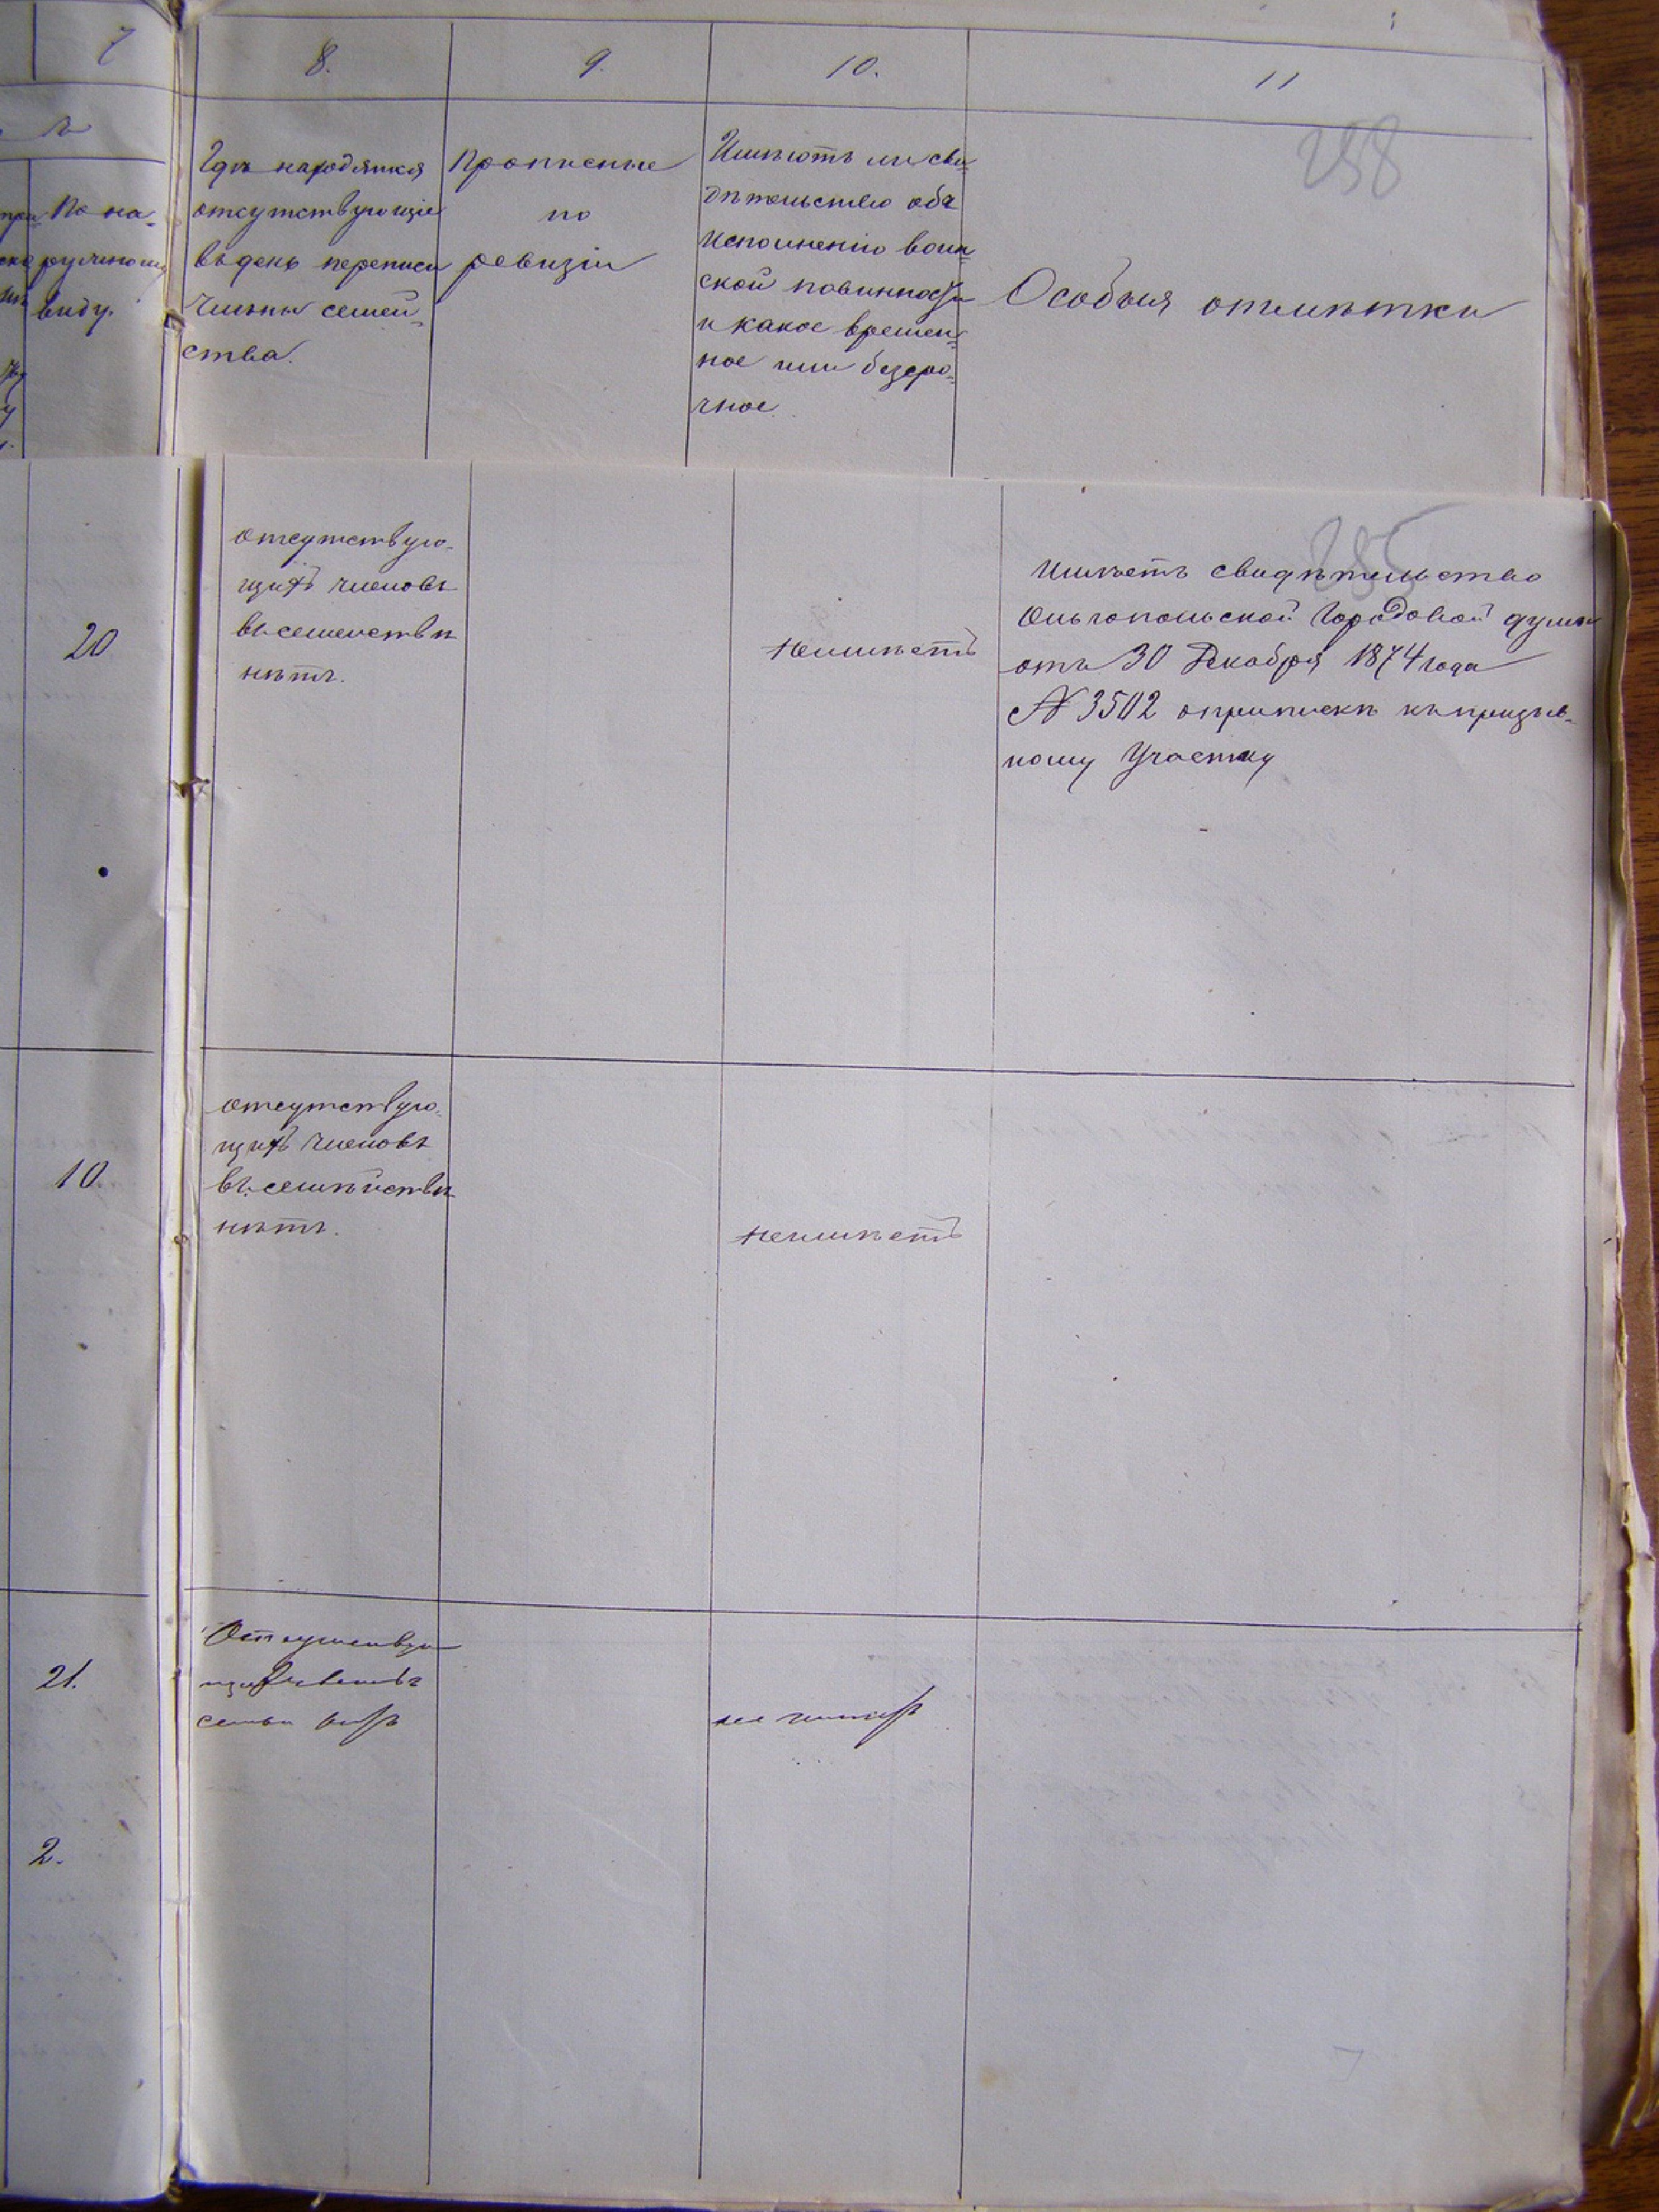 7
8.
9.
10.
11
258
По на-
ручному
виду.
Гдѣ находятся
отсутствующіе
въ день переписи
члены семей-
ства.
Прописные
по
ревизіи
Имѣютъ ли сви-
дѣтельство объ
исполненіи воин-
ской повинности
и какое времен-
ное или безсро-
чное
Особыя отмѣтки
285
20
отсутствую-
щихъ членовъ
въ семействѣ
нѣтъ.
неимѣетъ
имѣетъ свидѣтельство
Ольгопольской Городовой думы
отъ 30 Декабря 1874 года
№ 3502 оприпискѣ къ призыв-
ному Участку
10.
отсутствую-
щихъ членовъ
въ семѣйствѣ
нѣтъ.
неимѣетъ
21.
Отсутствую-
щихъ членовъ
семьи нѣтъ
не имѣетъ
2.